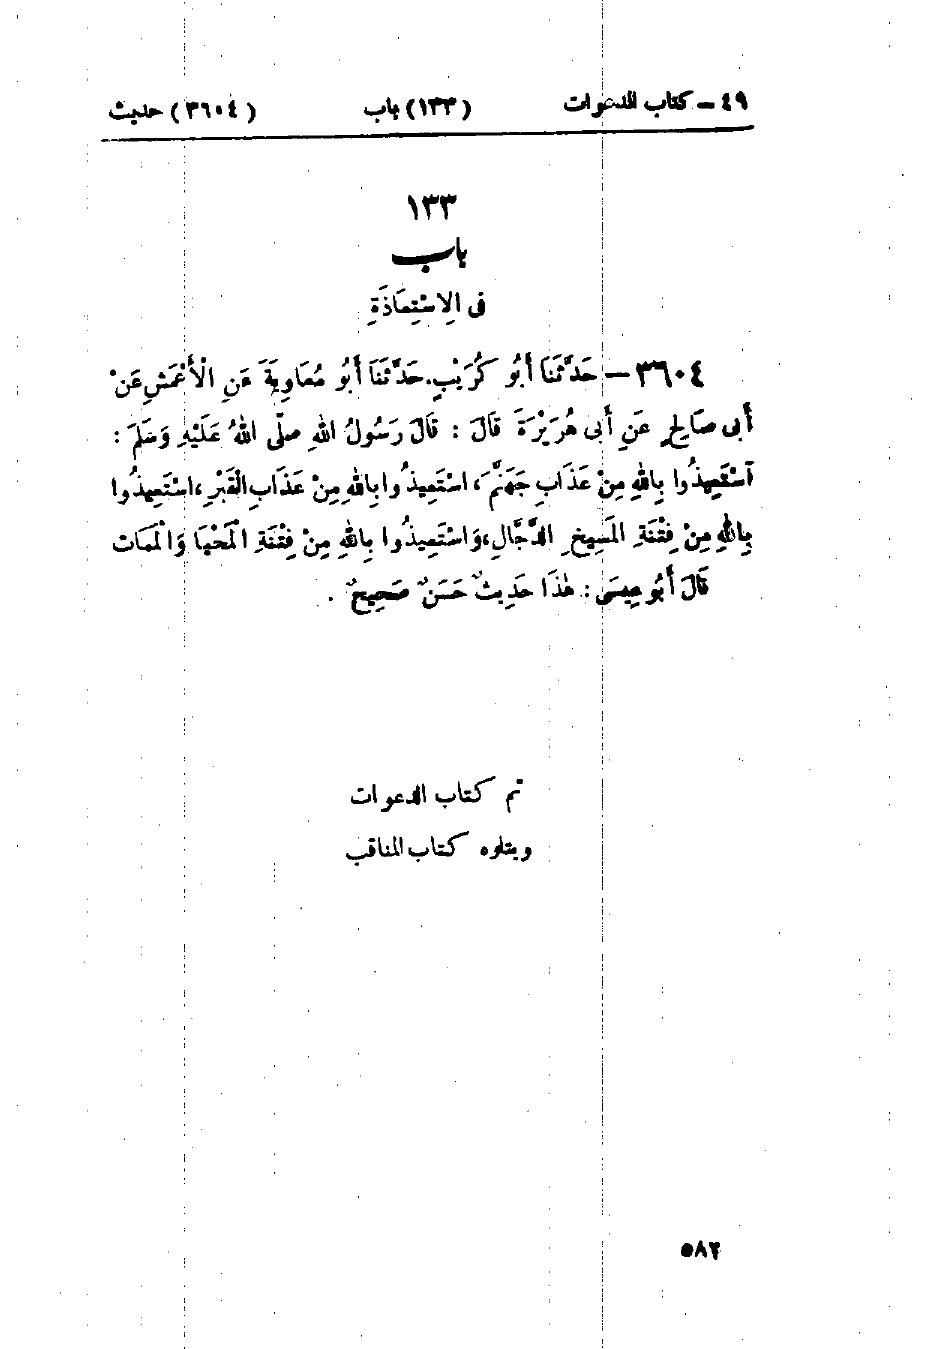 ٤٩ – كتاب الدعوات (١٣٣) باب (٣٦٠٤) حديث
١٣٣
باب
فى الِاسْتِعَاذَةِ
٣٦٠٤ – حَدَّثَنَا أَبُو كُرَيْبٍ. حَدَّثَنَا أَبُو مُعَاوِيَةَ عَنِ الْأَعْمَشِ عَنْ
أَبِى صَالِحٍ عَنِ أَبِى هُرَيْرَةَ قَالَ : قَالَ رَسُولُ اللهِ صلّى اللهُ عَلَيْهِ وَسَلَّمَ :
اسْتَعِيذُوا بِاللهِ مِنْ عَذَابِ جَهَنَّمَ، اسْتَعِيذُوا بِاللهِ مِنْ عَذَابِ الْقَبْرِ، اسْتَعِيذُوا
بِاللهِ مِنْ فِتْنَةِ الْمَسِيحِ الدَّجَّالِ، وَاسْتَعِيذُوا بِاللهِ مِنْ فِتْنَةِ الْمَحْيَا وَالْمَمَات
قَالَ أَبُو عِيسَى : هٰذَا حَدِيثٌ حَسَنٌ صَحِيحٌ .
تم كتاب الدعوات
ويتلوه كتاب المناقب
٥٨٢